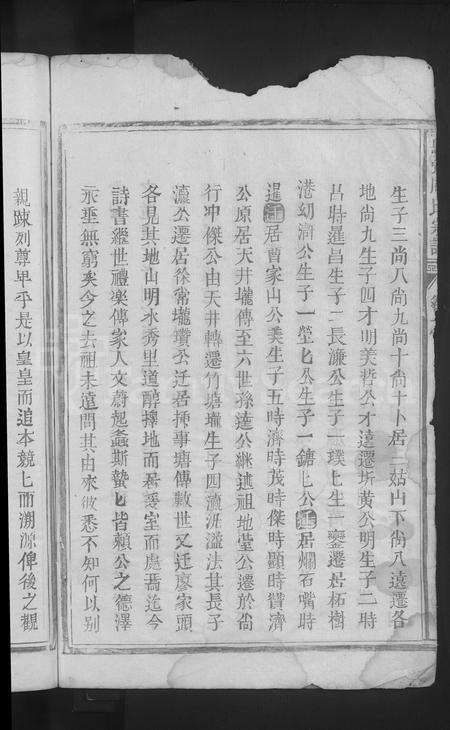 生子三尚八尚九尚十尚十卜居二姑山下尚八遠遷各
地尚九生子四才明美哲公才遠遷圻黃公明生子二時
昌時暹昌生子二長濂公生子一璞七生一鑾遷居柘樹
港幼滴公生子一塋七公生子一鏽七公遷居爛石嘴時
暹遷居曾家山公美生子五時濟時茂時傑時顯時贊濟
公原居天井壠傳至六世孫達公継述祖地瑩公遷於尚
行冲傑公由天井轉遷竹塘壠生子四瀛洪溢法其長子
瀛公遷居徐常壠瓚公迁居揷事塘傳數世又迁廖家頭
各見其地山明水秀里道醇擇地而居爰室而處焉迄今
詩書繼世禮樂傳家人文蔚起螽斯蟄七皆賴公之德澤
永垂無窮矣今之去祖未遠問其由來做悉不知何以别
親踈列尊卑乎是以皇皇而追本競上而溯源俾後之觀